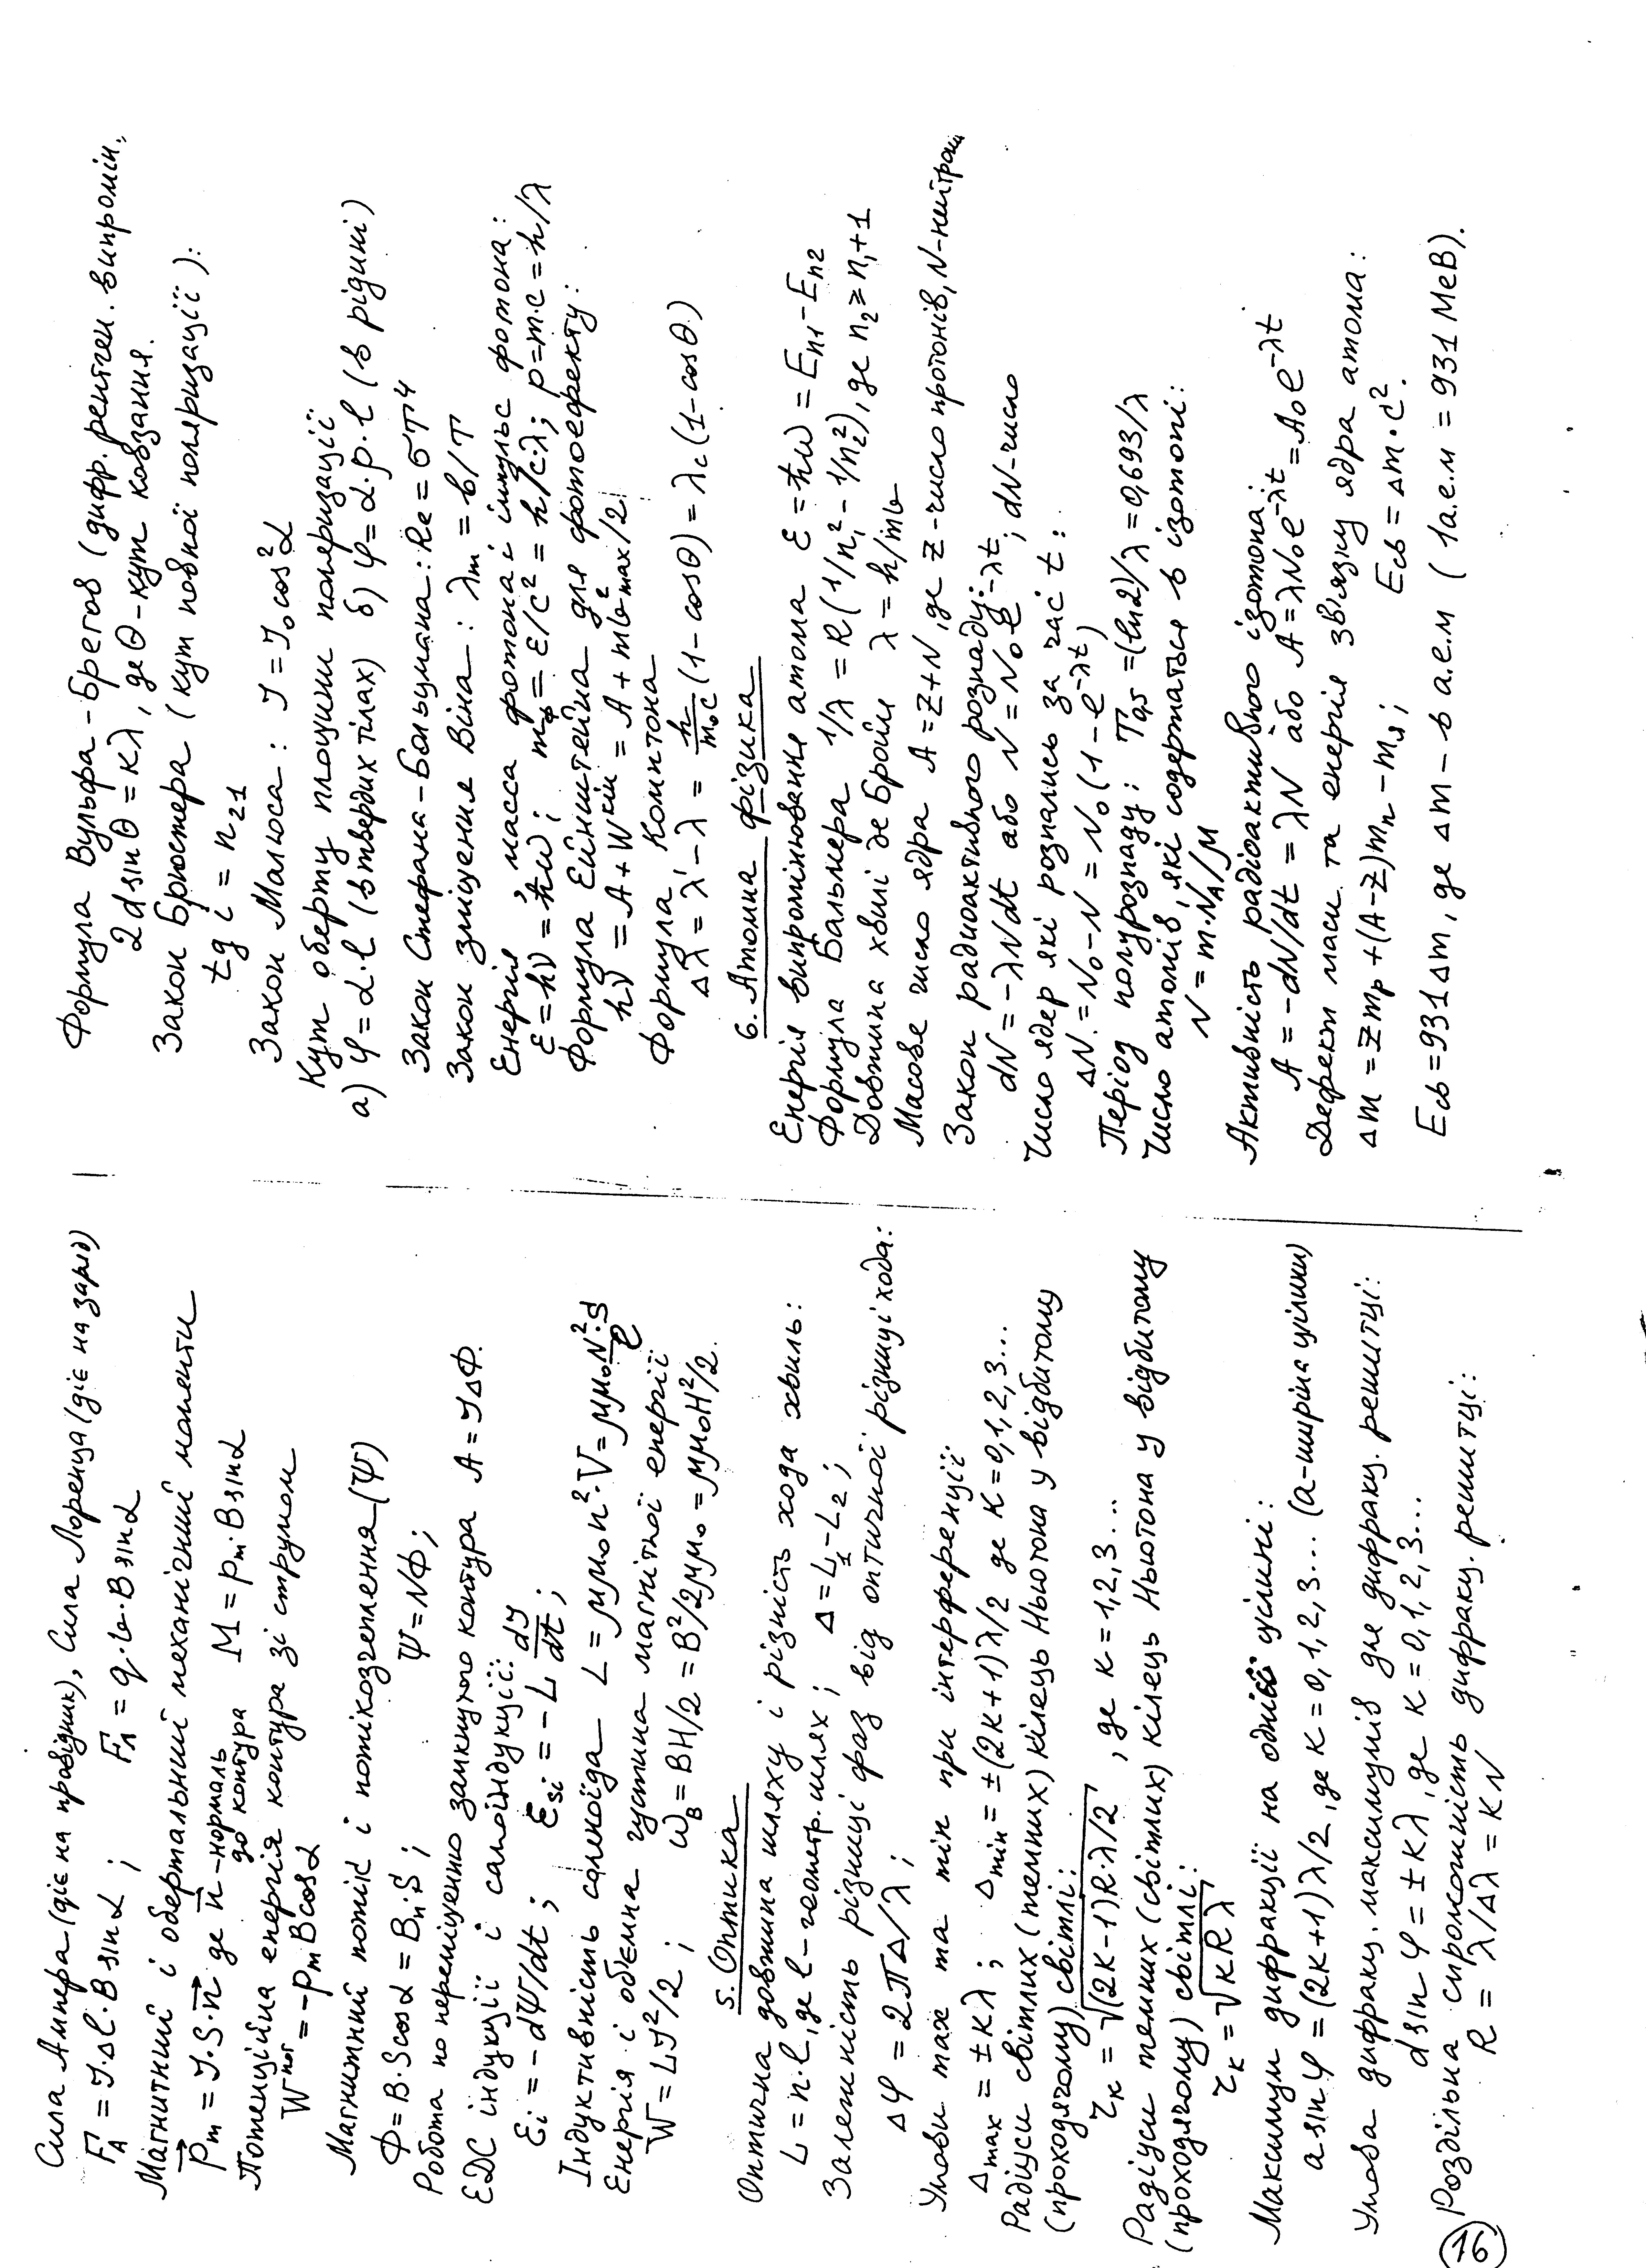 Сила Ампера (діє на провідник), Сила Лоренца (діє на заряд)
F_A = I·Δl·B sinα ; F_Л = q·v·B sinα
Магнитний і обертальний механічний моменти
P⃗m = I·S·n⃗ де n⃗ - нормаль до контура M = pm·B sinα
Потенційна енергія контура зі струмом
W^пот = -Pm B cosα
Магнитний потік і потікозчеплення (Ψ)
Ф = B·S cosα = Bn·S ; Ψ = NФ ;
Робота по переміщенню замкнутого контура A = IΔФ.
ЕДС індукції і самоіндукції:
Ɛi = -dΨ/dt ; Ɛsi = -L dI/dt ;
Індуктивність соленоїда L = μμ₀n²·V = μμ₀N²·S/ℓ
Енергія і об'ємна густина магнітної енергії
W = LI²/2 ; ωB = BH/2 = B²/2μμ₀ = μμ₀H²/2.
5. Оптика
Оптична довжина шляху і різність хода хвиль:
L = n·l, де l - геометр. шлях ; Δ = L₁ - L₂ ;
Залежність різниці фаз від оптичної різниці хода:
Δφ = 2πΔ/λ ;
Умови max та min при інтерференції
Δmax = ±kλ ; Δmin = ±(2k+1)λ/2 де k=0,1,2,3...
Радіуси світлих (темних) кілець Ньютона у відбитому
(проходячому) світлі:
rк = √(2k-1)R·λ/2 , де k=1,2,3...
Радіуси темних (світлих) кілець Ньютона у відбитому
(проходячому) світлі:
rк = √kRλ
Максимум дифракції на одній щілині:
a sinφ = (2k+1)λ/2, де k=0,1,2,3... (a-ширина щілини)
Умова дифракц. максимумів для дифракц. решітці:
d sinφ = ±kλ, де k=0,1,2,3...
Роздільна спроможність дифракц. решітці:
R = λ/Δλ = kN
16
Формула Вульфа-Брегов (дифр. рентген. випромін.
2d sinθ = kλ, де θ - кут ковзання.
Закон Брюстера (кут повної поляризації):
tg i = n₂₁
Закон Малюса: I = I₀cos²α
Кут оберту площини поляризації
а) φ = α·l (в твердих тілах) б) φ = α·ρ·l (в рідині)
Закон Стефана-Больцмана: Re = σT⁴
Закон зміщення Віна: λm = b/T
Енергія, масса фотона і імпульс фотона:
ε = hν = ħω ; mф = ε/c² = h/c·λ ; p = m·c = h/λ
Формула Ейнштейна для фотоефекту:
hν = A + W^кін = A + mv²max/2
Формула Комптона
Δλ = λ' - λ = h/m₀c (1 - cosθ) = λc(1 - cosθ)
6. Атомна фізика
Енергія випромінювання атома ε = ħω = En1 - En2
Формула Бальмера 1/λ = R(1/n₁² - 1/n₂²), де n₂ ≥ n₁+1
Довжина хвилі де Бройля λ = h/mv
Масове число ядра A = Z+N, де Z - число протонів, N - нейтронів
Закон радиоактивного розпаду:
dN = -λNdt або N = N₀e^-λt ; dN - число
Число ядер які розпались за час t :
ΔN = N₀ - N = N₀(1 - e^-λt)
Період полурозпаду: T₀,₅ = (ln2)/λ = 0,693/λ
Число атомів, які содержаться в ізотопі:
N = m·N_A/M
Активність радіоактивного ізотопа:
A = -dN/dt = λN або A = λN₀e^-λt = A₀e^-λt
Дефект маси та енергія зв'язку ядра атома:
Δm = Zmp + (A-Z)mn - mя ; Eсв = Δm·c².
Eсв = 931Δm, де Δm - в а.е.м (1а.е.м = 931 МеВ).